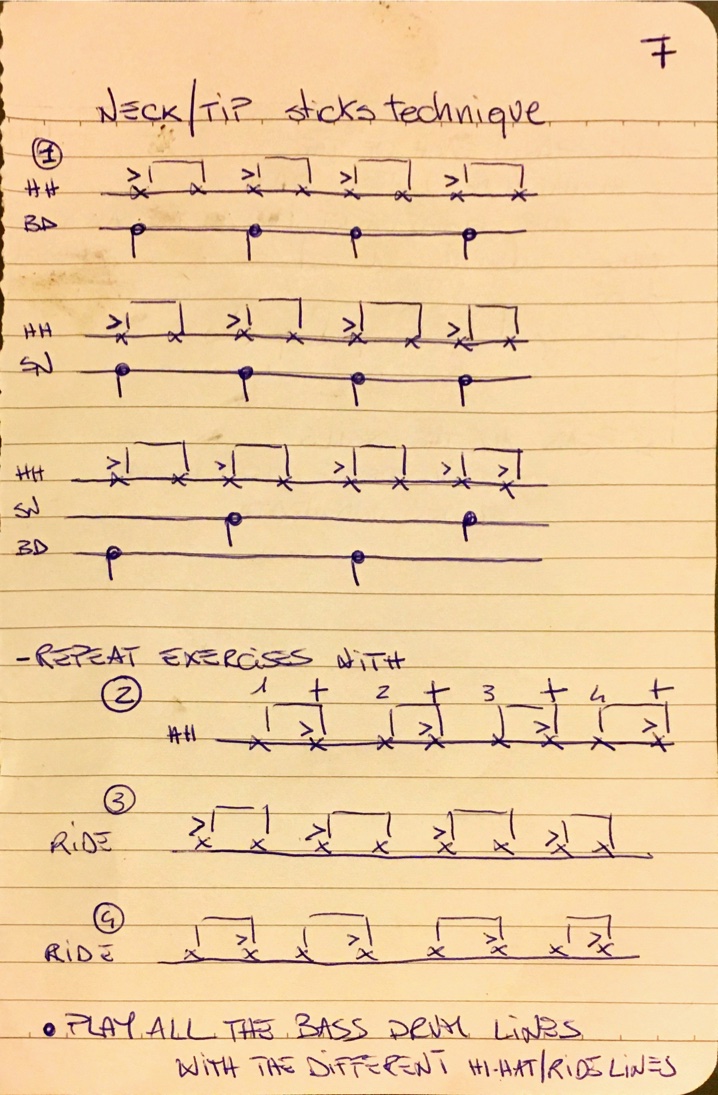 7
NECK/TIP sticks technique
1
HH
BD
HH
SN
HH
SN
BD
-REPEAT EXERCISES WITH
2 1 + 2 + 3 + 4 +
HH
3
RIDE
4
RIDE
• PLAY ALL THE BASS DRUM LINES
WITH THE DIFFERENT HI-HAT/RIDE LINES